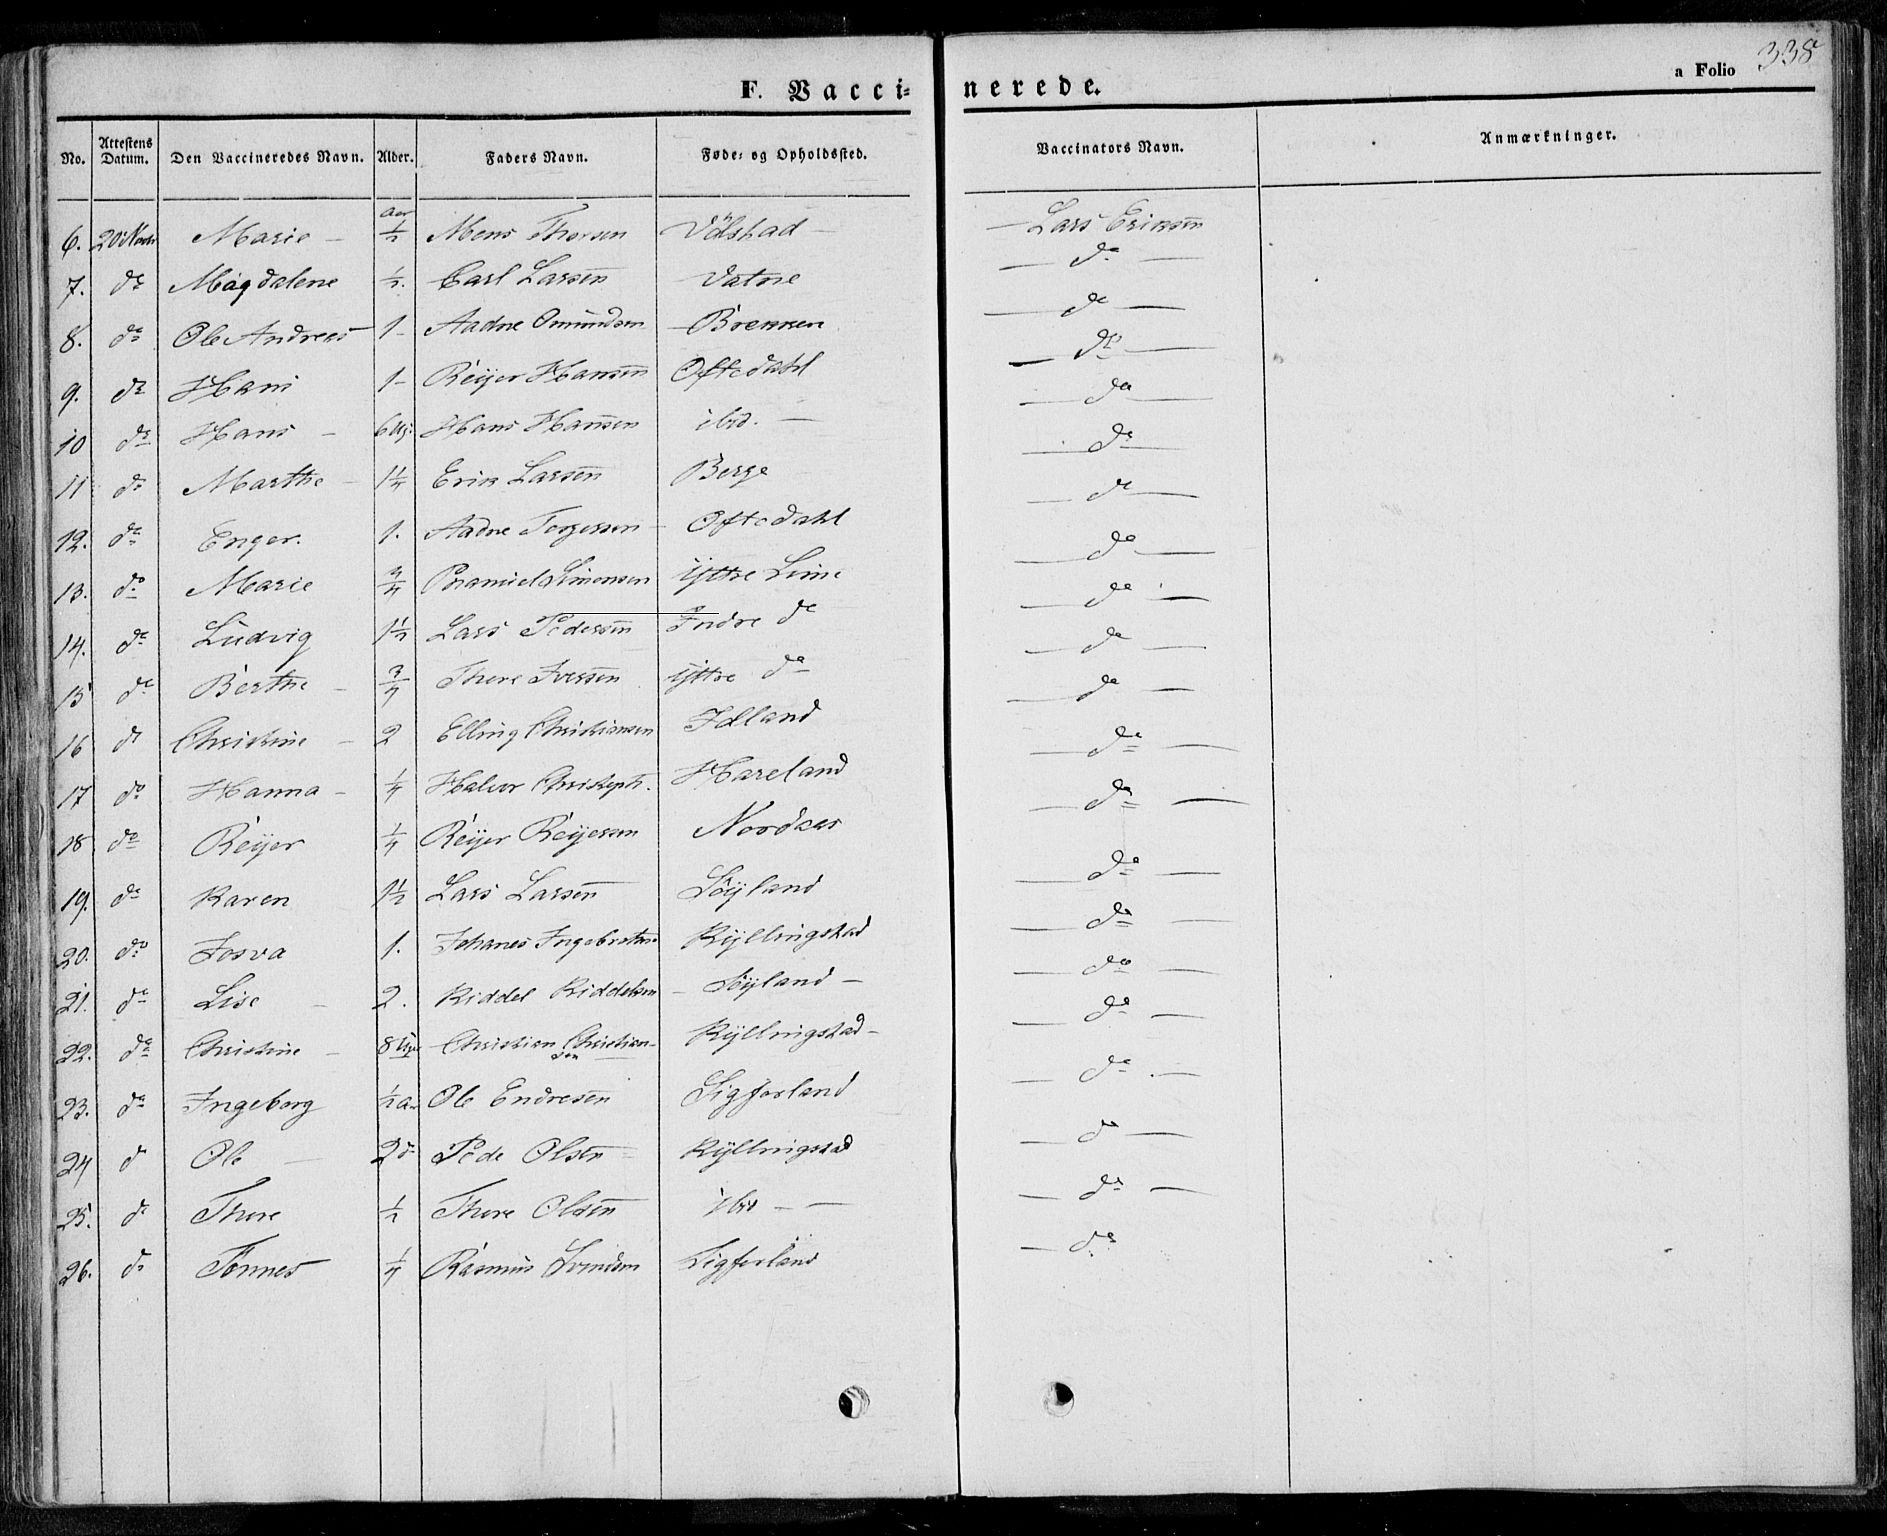 338
a Folio
F. Vaccinerede.
No. | Attestens Datum. | Den Vaccineredes Navn. | Alder. | Faders Navn. | Føde- og Opholdssted. | Vaccinators Navn. | Anmærkninger.
6. | 20 | Marie – | aar ½ | Mons Thorsen | – | Lars Eriksen
7. | do | Magdalene | ½. | Carl Larsen | Vatne | do
8. | do | Ole Andreas | 1– | Aadne Omundsen | Brekken | do
9. | do | Hans | 1– | Reijer Hansen | Oftedahl | do
10 | do | Hans – | 6 | Hans Hansen | ibid. – | do
11 | do | Marthe – | 1¼ | Erik Larsen | Berge | do
12. | do | Enger. | 1. | Aadne Torgersen – | Oftedahl | do
13. | do | Marie | ¾ | Simonsen | Yttre Lime | do
14. | do | Ludvig | 1½ | Lars Pedersen | Indre do | do
15 | do | Berthe – | ¾ | Thore Iversen | ijttre do | do
16 | do | Christine – | 2 | Elling Christiansen | | do
17 | do | Hanna – | ¼ | Halvor Christoph. | Hareland | do
18 | do | Reijer | ¼ | Reijer Reijersen | Nordaas | do
19. | do | Karen | 1½ | Lars Larsen | Söijland | do
20. | do | Josva | 1. | Johanes Ingebretsen | Kÿllingstad | do
21. | do | Lise – | 2. | Kiddel Kiddelsen | – Söijland – | do
22. | do | Christine – | 8 | Christian Christiansen | Kÿllingstad – | do
23. | do | Ingeborg | ½ a | Ole Endresen | Ligforland | do
24 | do | Ole – | 2 do | Peder Olsen | Kÿllingstad | do
25. | do | Thore | ½ | Thore Olsen | ibid – – | do
26. | do | Tönnes | ¼ | Rasmus Svendsen | Ligforland | do